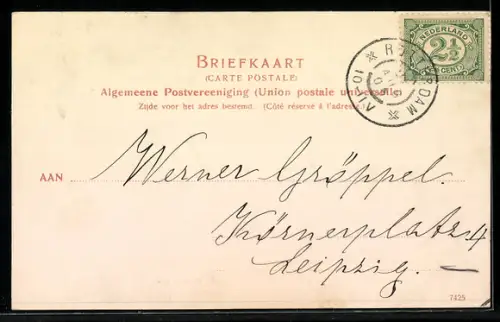 BRIEFKAART
(CARTE POSTALE)
Algemeene Postvereeniging (Union postale universelle)
Zijde voor het adres bestemd. (Côté réservé à l'adresse.)
NEDERLAND
2½
CENT
ROTTERDAM
AAN Werner Gröppel.
Körnerplatz 4
Leipzig. —
7425